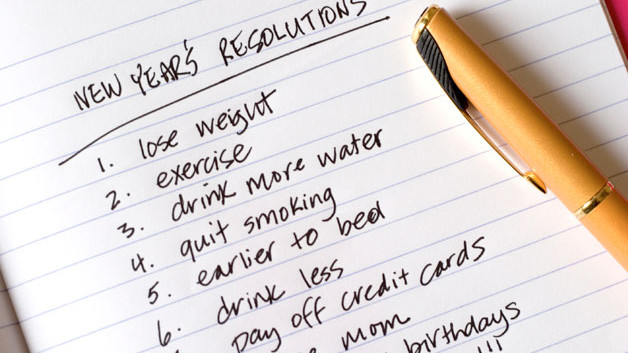 NEW YEAR'S RESOLUTIONS
1. lose weight
2. exercise
3. drink more water
4. quit smoking
5. earlier to bed
6. drink less
pay off credit cards
mom
birthdays
!!!